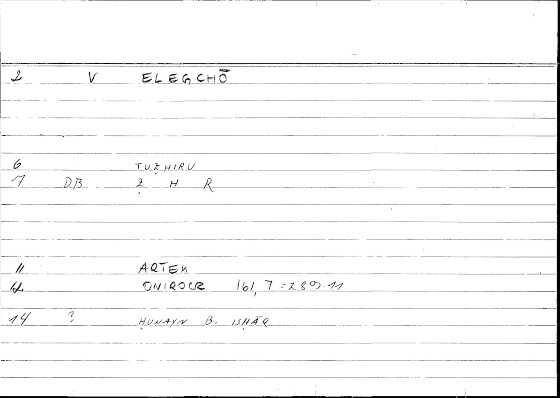 2 V ELEGCHŌ
6 TUẒHIRU
7 DB Ẓ H R
11 ARTEM
12 ONIROCR 161, 7 = 289.11
14 ? ḤUNAYN B. ISḤĀQ